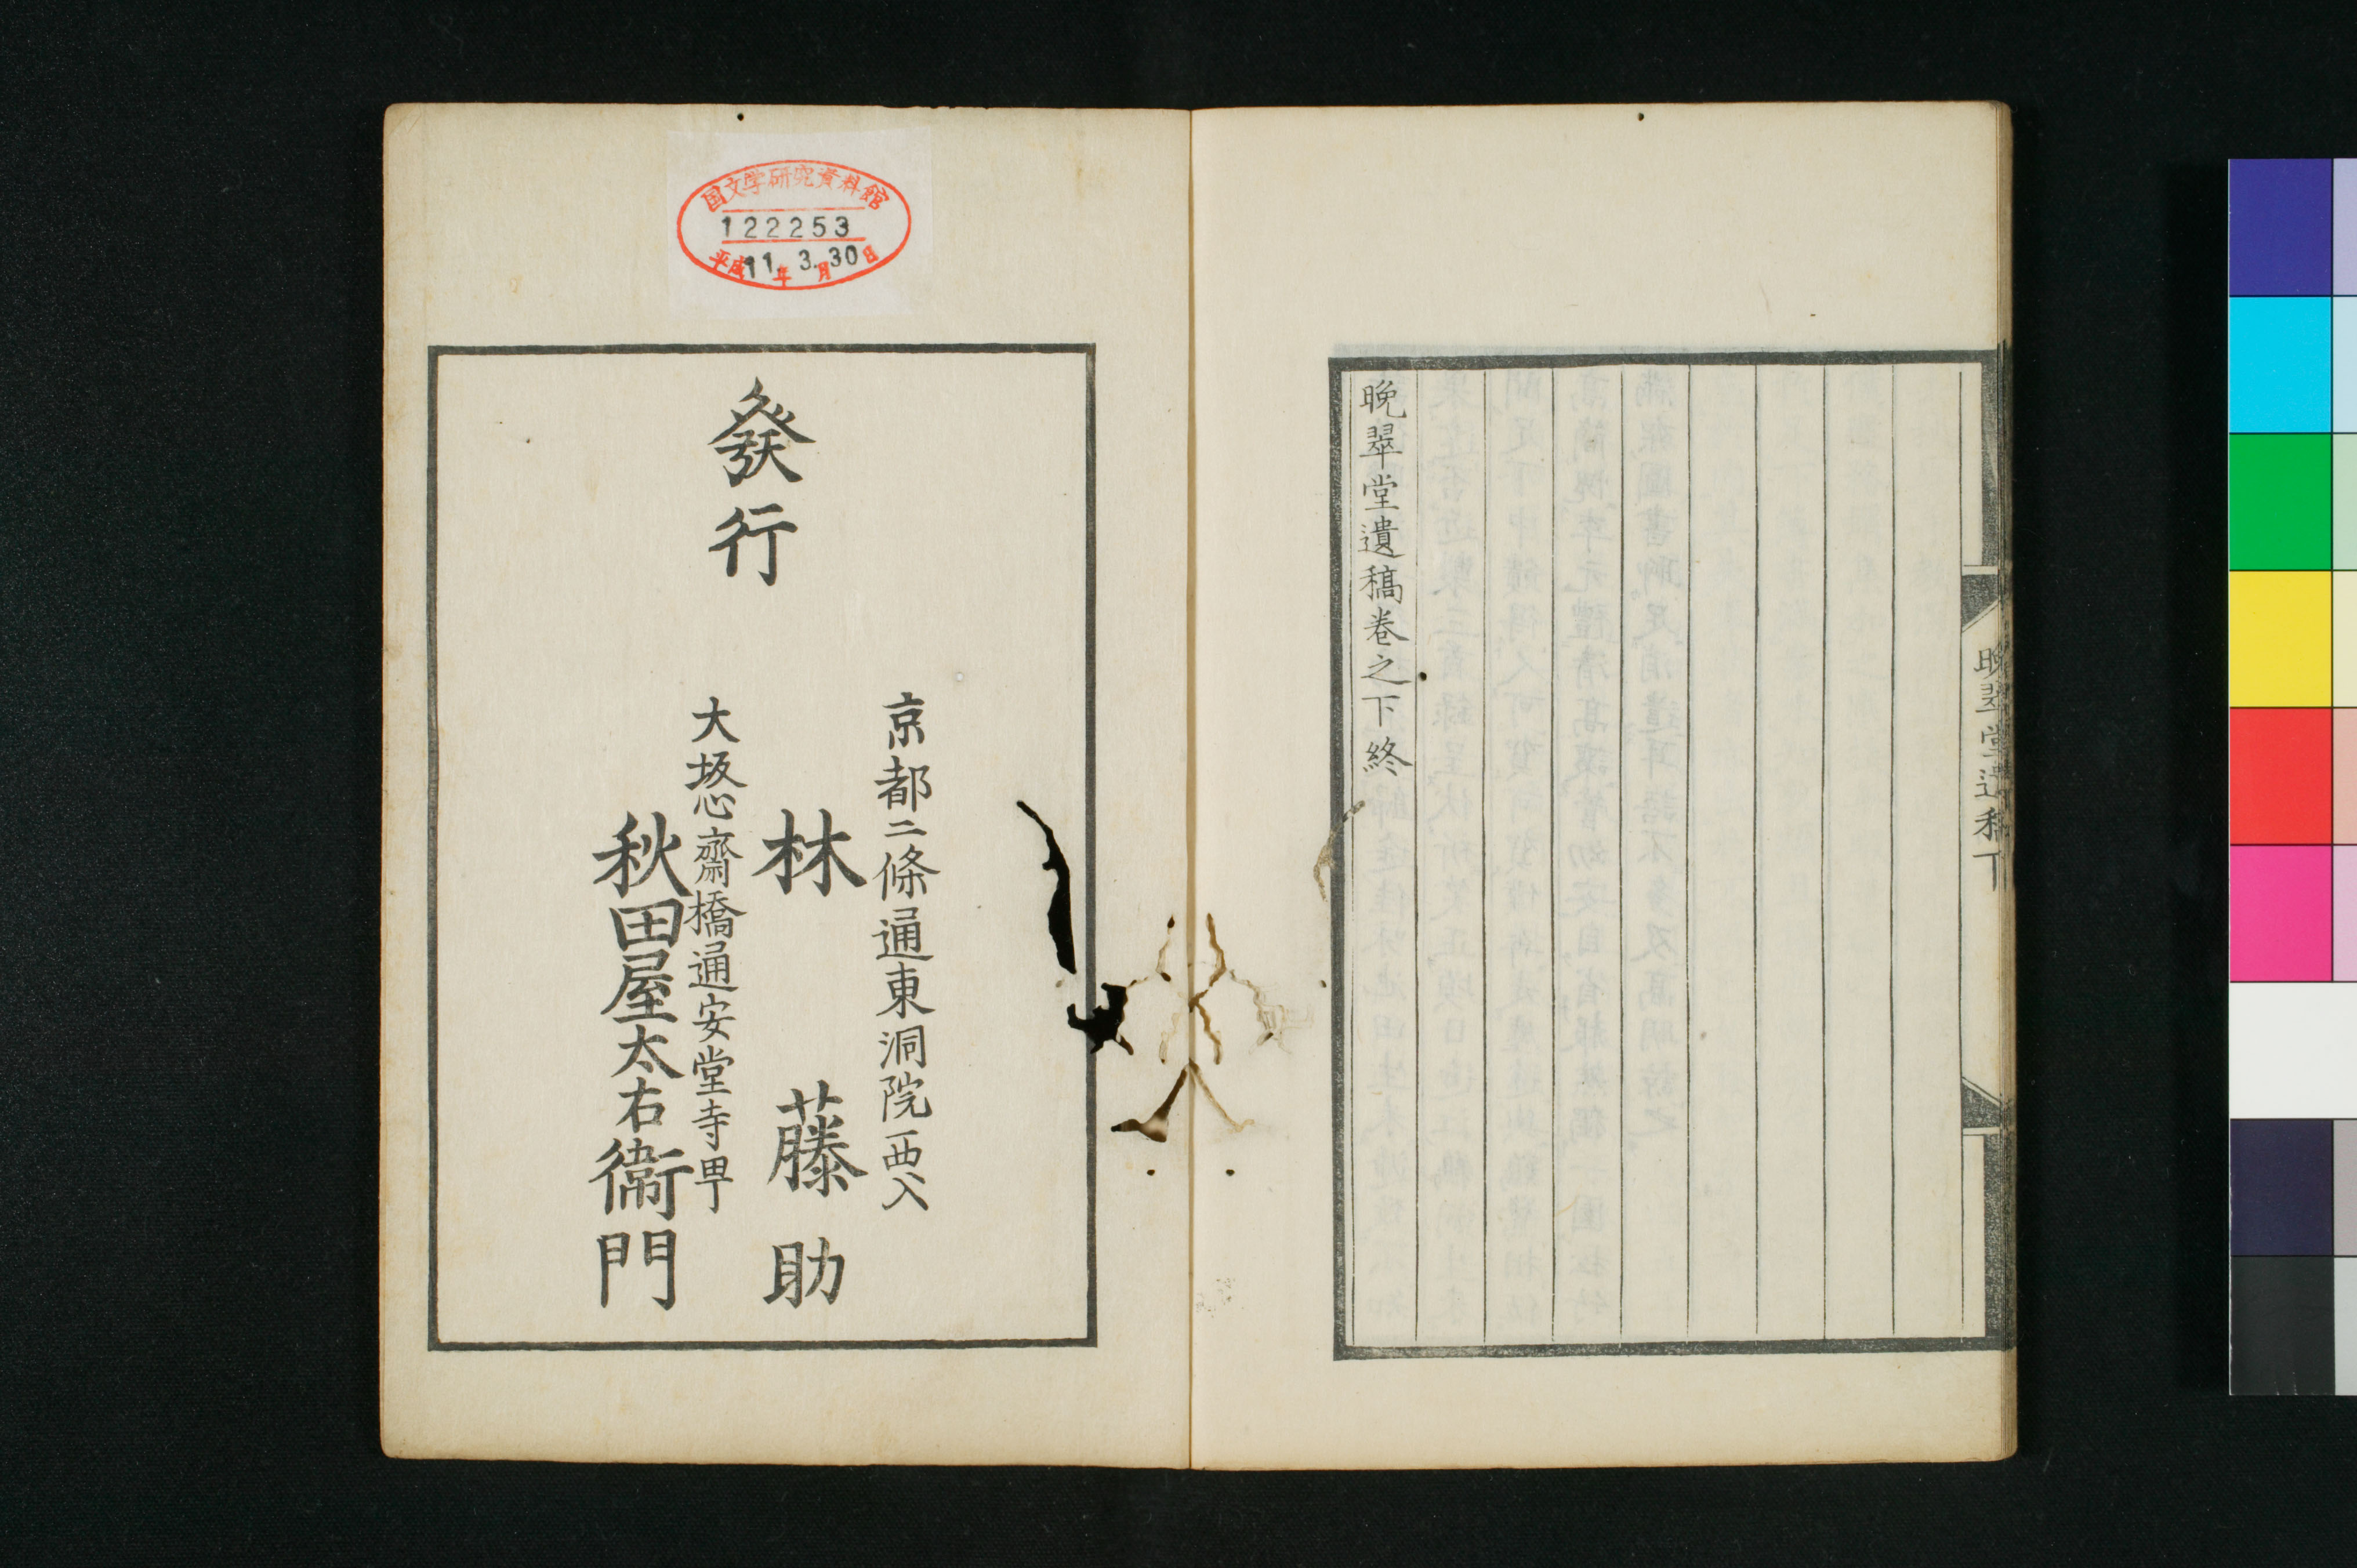 晩翠堂遺稿下
晩翠堂遺稿卷之下終
国文学研究資料館
122253
平成11年3月30日
發行
京都二條通東洞院西入
林藤助
大坂心齋橋通安堂寺町
秋田屋太右衛門